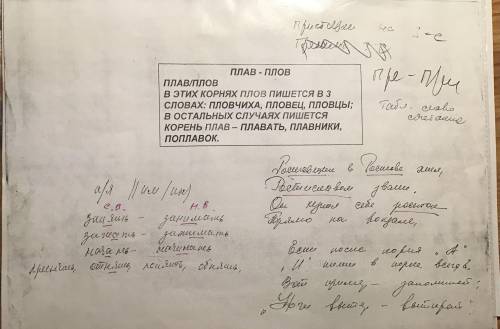 Приставки на з-с
Пре - При
Табл. слово
сочетание
ПЛАВ - ПЛОВ
ПЛАВ/ПЛОВ
В ЭТИХ КОРНЯХ ПЛОВ ПИШЕТСЯ В 3
СЛОВАХ: ПЛОВЧИХА, ПЛОВЕЦ, ПЛОВЦЫ;
В ОСТАЛЬНЫХ СЛУЧАЯХ ПИШЕТСЯ
КОРЕНЬ ПЛАВ – ПЛАВАТЬ, ПЛАВНИКИ,
ПОПЛАВОК.
а/я || им/ин/
С.В. Н.В.
занять - занимать
зажать - зажимать
начать - начинать
отнять, понять, обнять,
Ростовщик в Ростове жил,
Ростиславом звали.
Он купил себе росток
Прямо на вокзале.
Если после корня "А"
"И" пиши в корне всегда.
Вот пример - запоминай:
"Ноги вытер - вытирай"